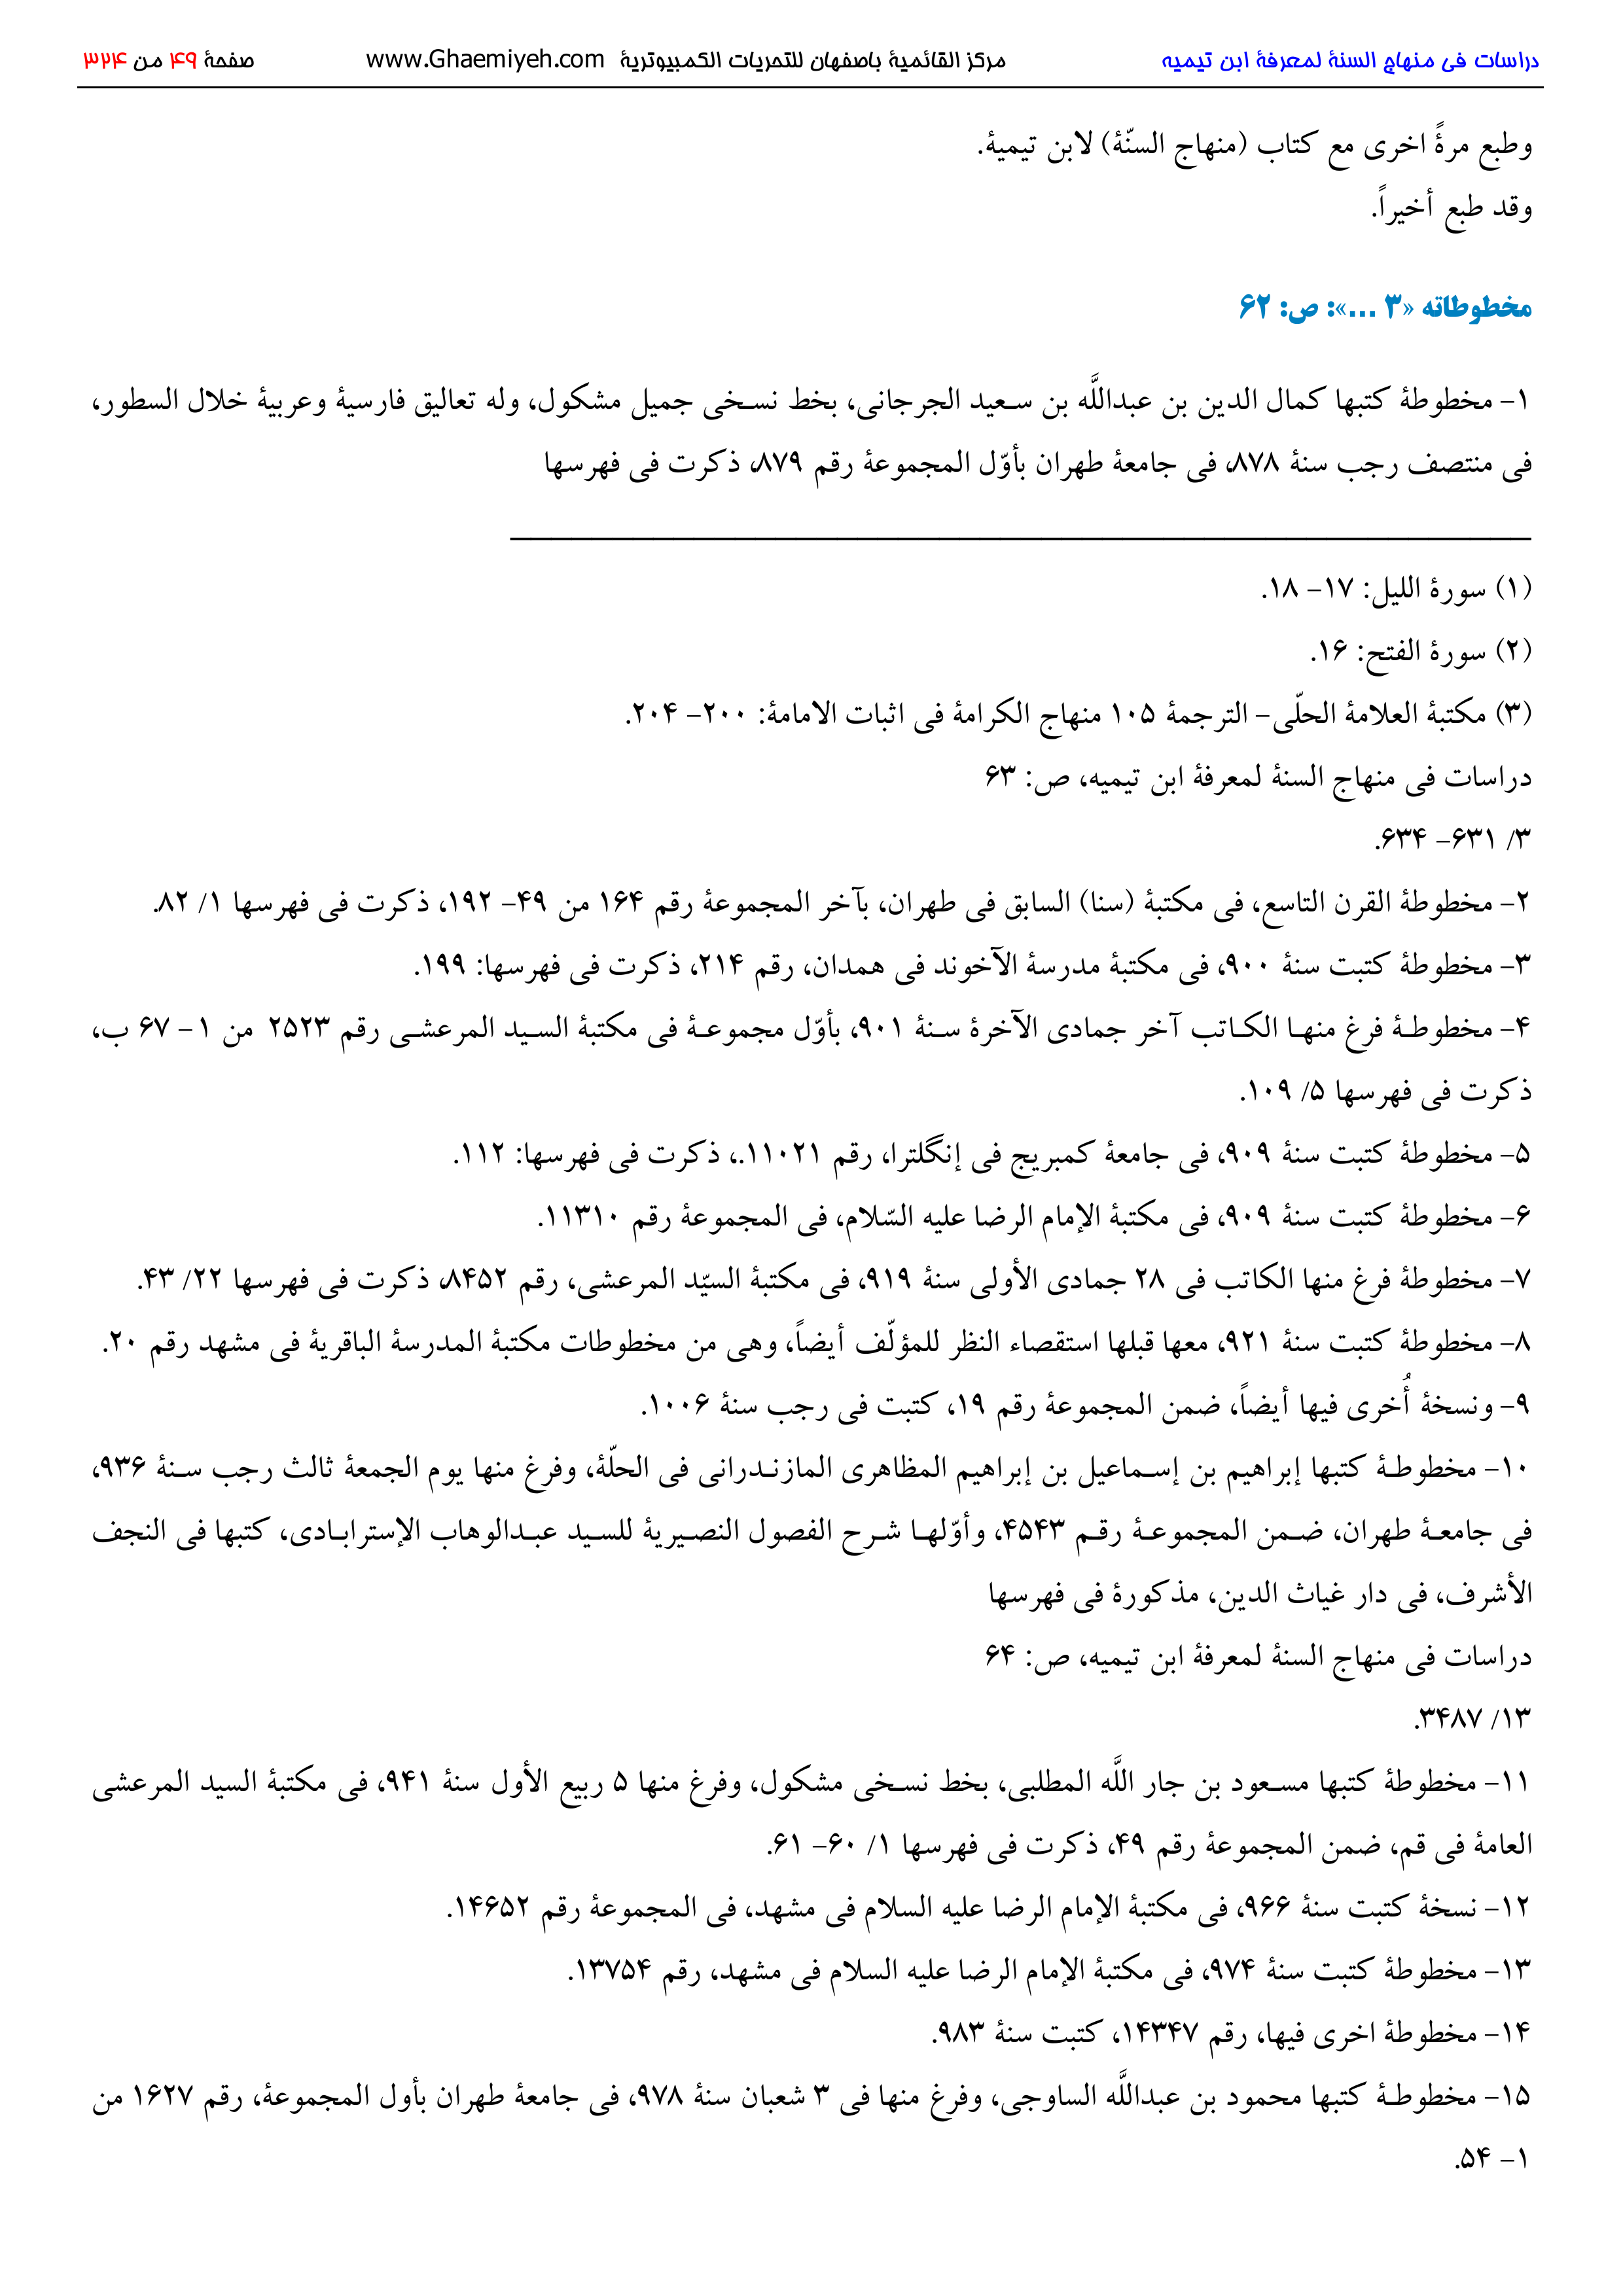 دراسات فى منهاج السنۀ لمعرفۀ ابن تيميه مركز القائميۀ باصفهان للتحريات الكمبيوتريۀ www.Ghaemiyeh.com صفحۀ ۴۹ من ۳۲۴
وطبع مرۀً اخرى مع كتاب (منهاج السنّۀ) لابن تيميۀ.
وقد طبع أخيراً.
مخطوطاته «۳ ...»: ص: ۶۲
۱- مخطوطۀ كتبها كمال الدين بن عبداللَّه بن سعيد الجرجانى، بخط نسخى جميل مشكول، وله تعاليق فارسيۀ وعربيۀ خلال السطور،
فى منتصف رجب سنۀ ۸۷۸، فى جامعۀ طهران بأوّل المجموعۀ رقم ۸۷۹، ذكرت فى فهرسها
(۱) سورۀ الليل: ۱۷- ۱۸.
(۲) سورۀ الفتح: ۱۶.
(۳) مكتبۀ العلامۀ الحلّى- الترجمۀ ۱۰۵ منهاج الكرامۀ فى اثبات الامامۀ: ۲۰۰- ۲۰۴.
دراسات فى منهاج السنۀ لمعرفۀ ابن تيميه، ص: ۶۳
۳/ ۶۳۱- ۶۳۴.
۲- مخطوطۀ القرن التاسع، فى مكتبۀ (سنا) السابق فى طهران، بآخر المجموعۀ رقم ۱۶۴ من ۴۹- ۱۹۲، ذكرت فى فهرسها ۱/ ۸۲.
۳- مخطوطۀ كتبت سنۀ ۹۰۰، فى مكتبۀ مدرسۀ الآخوند فى همدان، رقم ۲۱۴، ذكرت فى فهرسها: ۱۹۹.
۴- مخطوطۀ فرغ منها الكاتب آخر جمادى الآخرۀ سنۀ ۹۰۱، بأوّل مجموعۀ فى مكتبۀ السيد المرعشى رقم ۲۵۲۳ من ۱- ۶۷ ب،
ذكرت فى فهرسها ۵/ ۱۰۹.
۵- مخطوطۀ كتبت سنۀ ۹۰۹، فى جامعۀ كمبريج فى إنگلترا، رقم ۱۱۰۲۱.، ذكرت فى فهرسها: ۱۱۲.
۶- مخطوطۀ كتبت سنۀ ۹۰۹، فى مكتبۀ الإمام الرضا عليه السّلام، فى المجموعۀ رقم ۱۱۳۱۰.
۷- مخطوطۀ فرغ منها الكاتب فى ۲۸ جمادى الأولى سنۀ ۹۱۹، فى مكتبۀ السيّد المرعشى، رقم ۸۴۵۲، ذكرت فى فهرسها ۲۲/ ۴۳.
۸- مخطوطۀ كتبت سنۀ ۹۲۱، معها قبلها استقصاء النظر للمؤلّف أيضاً، وهى من مخطوطات مكتبۀ المدرسۀ الباقريۀ فى مشهد رقم ۲۰.
۹- ونسخۀ أُخرى فيها أيضاً، ضمن المجموعۀ رقم ۱۹، كتبت فى رجب سنۀ ۱۰۰۶.
۱۰- مخطوطۀ كتبها إبراهيم بن إسماعيل بن إبراهيم المظاهرى المازندرانى فى الحلّۀ، وفرغ منها يوم الجمعۀ ثالث رجب سنۀ ۹۳۶،
فى جامعۀ طهران، ضمن المجموعۀ رقم ۴۵۴۳، وأوّلها شرح الفصول النصيريۀ للسيد عبدالوهاب الإسترابادى، كتبها فى النجف
الأشرف، فى دار غياث الدين، مذكورۀ فى فهرسها
دراسات فى منهاج السنۀ لمعرفۀ ابن تيميه، ص: ۶۴
۱۳/ ۳۴۸۷.
۱۱- مخطوطۀ كتبها مسعود بن جار اللَّه المطلبى، بخط نسخى مشكول، وفرغ منها ۵ ربيع الأول سنۀ ۹۴۱، فى مكتبۀ السيد المرعشى
العامۀ فى قم، ضمن المجموعۀ رقم ۴۹، ذكرت فى فهرسها ۱/ ۶۰- ۶۱.
۱۲- نسخۀ كتبت سنۀ ۹۶۶، فى مكتبۀ الإمام الرضا عليه السلام فى مشهد، فى المجموعۀ رقم ۱۴۶۵۲.
۱۳- مخطوطۀ كتبت سنۀ ۹۷۴، فى مكتبۀ الإمام الرضا عليه السلام فى مشهد، رقم ۱۳۷۵۴.
۱۴- مخطوطۀ اخرى فيها، رقم ۱۴۳۴۷، كتبت سنۀ ۹۸۳.
۱۵- مخطوطۀ كتبها محمود بن عبداللَّه الساوجى، وفرغ منها فى ۳ شعبان سنۀ ۹۷۸، فى جامعۀ طهران بأول المجموعۀ، رقم ۱۶۲۷ من
۱- ۵۴.